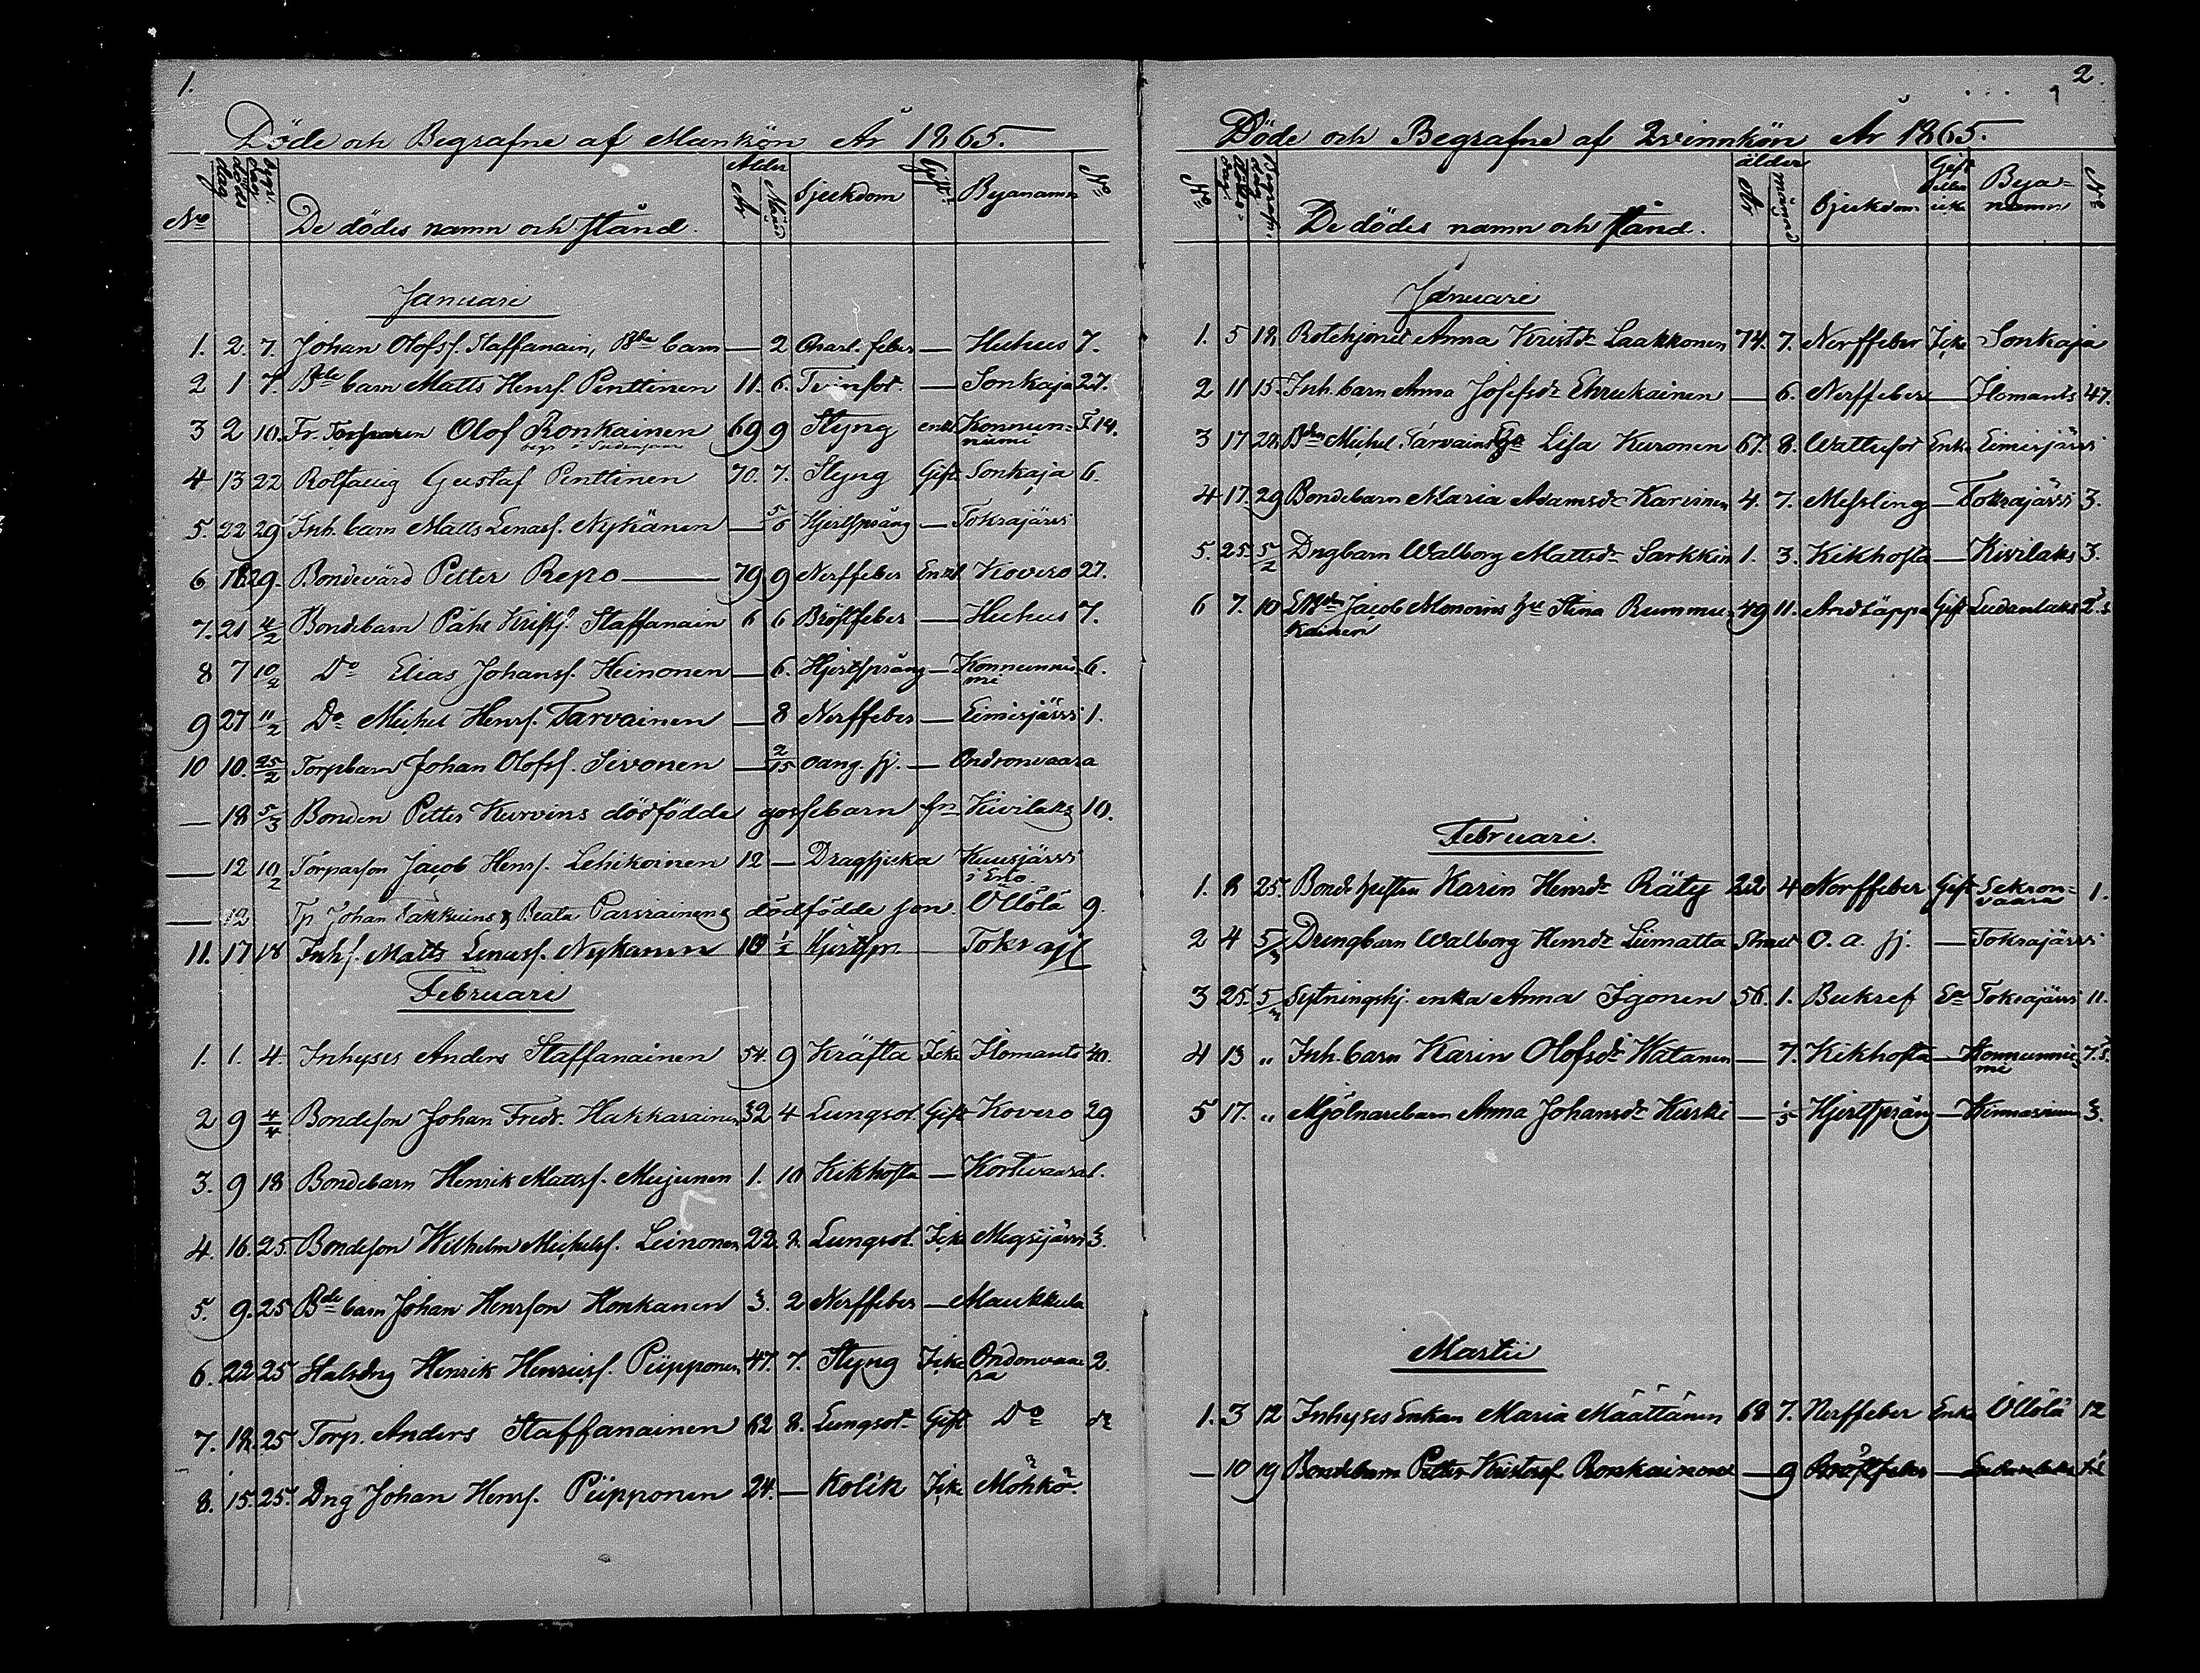 1.
Döde och Begrafne af Mankön År 1865.
No
döds dag
begr. dag
De dödes namn och stånd.
Ålder
år
Månad
Sjukdom
Gift
Byanamn
No
Januari
1. 2. 7. Johan Olofss. Staffanain, Bde barn — 2 Skarl. feber — Huhus 7.
2 1 7. Bde barn Matts Henrs. Penttinen 11. 6. Tvinsot. — Sonkaja 27.
3 2 10. Fr. Torparen Olof Ronkainen 69 9 Styng enkl. Konnunniemi I 14.
4 13 22 Rotfattig Gustaf Penttinen 70. 7. Styng Gift Sonkaja 6.
5. 22 29 Inh. barn Matts Lenass. Nykänen — 5/6 Hjertsprång — Tokrajärvi
6 18 29. Bondevärd Petter Repo — 79 9 Nerffeber Enkl. Kovero 27.
7. 21 4/2 Bondebarn Påhl Kristss. Staffanain 6 6 Bröstfeber — Huhus 7.
8 7 10/2 Do Elias Johanss. Heinonen — 6. Hjertsprång — Konnunniemi 6.
9 27 11/2 Do Michel Henrs. Tarvainen — 8 Nerffeber — Eimisjärvi 1.
10 10. 25/2 Torpbarn Johan Olofss. Sivonen — 2/15 oang. sj. — Ondronvaara
— 18 5/3 Bonden Petter Kurvins dödfödda gossebarn fn Kivilaks 10.
— 12 10/2 Torparson Jacob Henrs. Lehikoinen 12 — Dragsjuka Kuusjärvi i Eno
— 12 Tp. Johan Pakkuins & Beata Parviainens dödfödde son. Öllölä 9.
11. 17 18 Inhs. Matts Lenass. Nykanen 10 1/2 Hjertspr. Tokraj
Februari
1. 1. 4. Inhyses Anders Staffanainen 54. 9 Kräfta Icke Ilomants 40.
2 9 4/4 Bondeson Johan Fredr. Hakkarainen 32 4 Lungsot. Gift Kovero 29
3. 9 18 Bondebarn Henrik Mattss. Mujunen 1. 10 Kikhosta — Kortevaara 1.
4. 16. 25. Bondeson Wilhelm Michelss. Leinonen 22. 2. Lungsot. Icke Megrijärvi 3.
5. 9. 25 Bde barn Johan Henrson Honkanen 3. 2 Nerffeber — Maukkula
6. 22 25 Halsdrg Henrik Henricss. Piipponen 47. 7. Styng Icke Ondonvaara 2.
7. 18. 25 Torp. Anders Staffanainen 62 8. Lungsot Gift Do do
8. 15. 25. Dng Johan Henrs. Piipponen 24. — Kolik Icke Möhkö
2.
Döde och Begrafne af Qvinnkön År 1865.
No
De dödes namn och stånd.
ålder
År
månad
Sjukdom
Gift eller icke
Byanamn
No
Januari
1. 5 12 Rotehjonet Anna Kristdr Laakkonen 74. 7. Nerffeber Icke Sonkaja
2 11 15. Inh. barn Anna Josefsdr Ehrukainen — 6. Nerffeber — Ilomants 47.
3 17 28. Bden Michel Tarvains Ea Lisa Kuronen 67. 8. Wattusot Enka Eimisjärvi
4 17. 29 Bondebarn Maria Adamsdr Karvinen 4. 7. Messling — Tokrajärvi 3.
5. 25. 5/2 Dngbarn Walborg Mattsdr Sarkkin 1. 3. Kikhosta — Kivilaks 3.
6 7. 10 Jacob Monovins hu Stina Rummukainen 49 11. Andtäppa Gift Ludanlaks
Februari.
1. 8 25. Bondehustru Karin Henrdr Räty 22 4 Nerffeber Gift Sekronvaara 1.
2 4 5/3 Drengbarn Walborg Henrdr Liimatta O. a. sj. — Tokrajärvi
3 25. 5/3 Sytningshj. enka Anna Igonen 56. 1. Bukref Ea Tokrajärvi 11.
4 13 " Inh. barn Karin Olofsdr Watanen — 7. Kikhosta — Konnunniemi 7.
5 17. " Mjölnarebarn Anna Johansdr Kurki — 1/5 Hjertsprång — 3.
Martii
1. 3 12 Inhyses Enkan Maria Määttänen 68 7. Nerffeber Enka Öllölä 12
— 10 19 Bondebarn Petter Kristoff Ronkainen — 9 Bröstfeber —